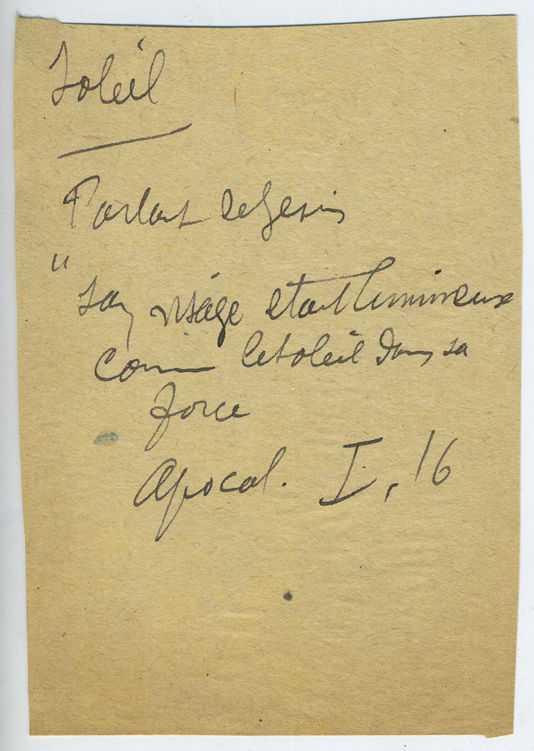 Soleil
Parlant de Jesus
"
Son visage etait lumineux
comme le soleil dans sa
force
Apocal. I, 16